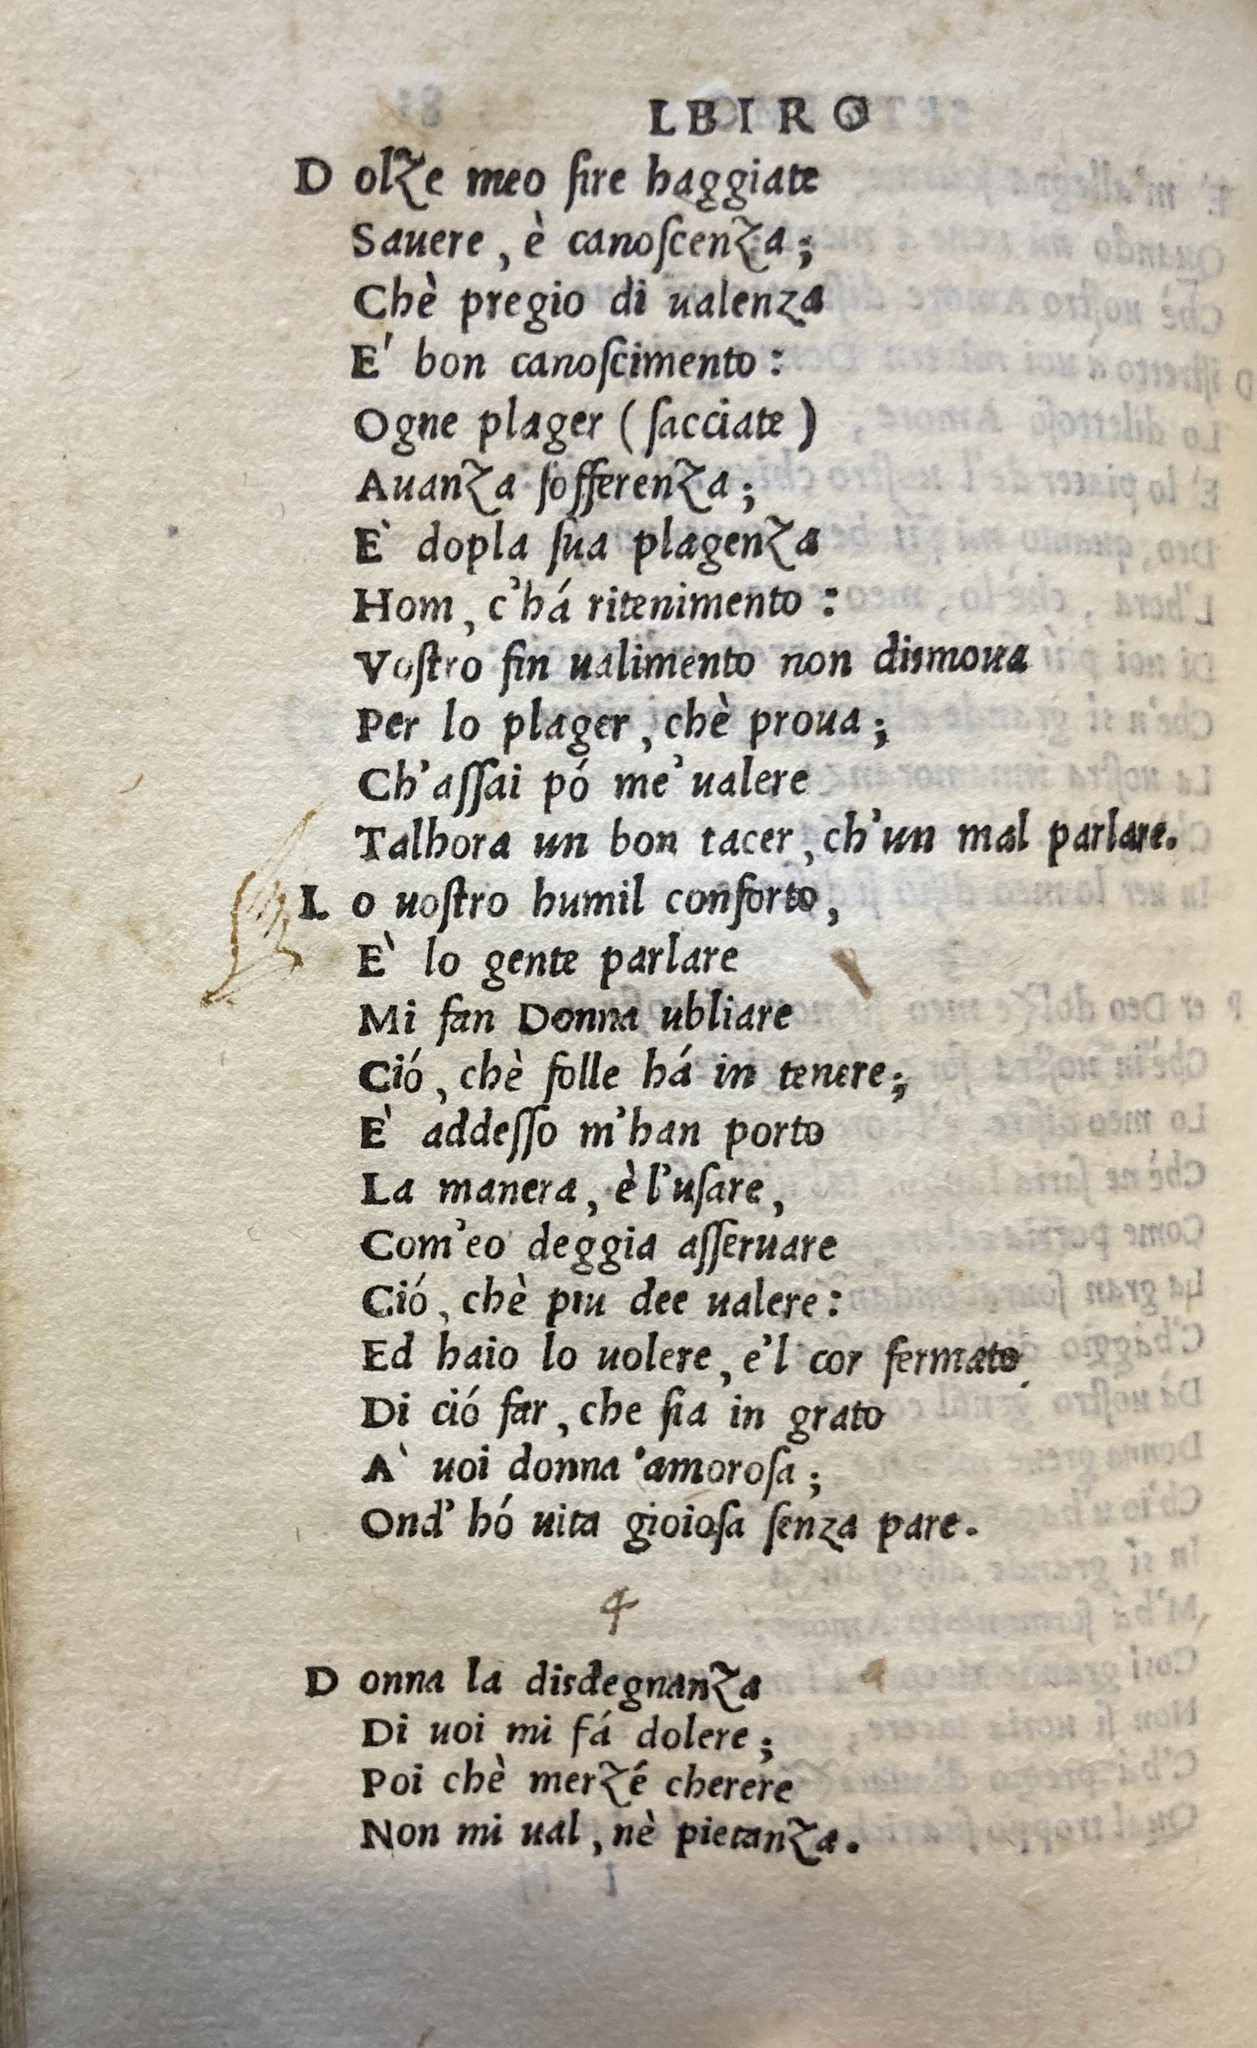 LBIRO
Dolze meo sire haggiate
Sauere, è canoscenza;
Chè pregio di ualenza
E' bon canoscimento:
Ogne plager (sacciate)
Auanza sofferenza;
E` dopla sua plagenza
Hom, c'há ritenimento:
Vostro fin ualimento non dismoua
Per lo plager, chè proua;
Ch'assai pó me' ualere
Talhora un bon tacer, ch'un mal parlare.
Lo uostro humil conforto,
E` lo gente parlare
Mi fan Donna ubliare
Ció, chè folle há in tenere;
E` addesso m'han porto
La manera, è l'usare,
Com'eo deggia asseruare
Ció, chè piu dee ualere:
Ed haio lo uolere, e'l cor fermato
Di ció far, che sia in grato
A` uoi donna amorosa;
Ond' hó uita gioiosa senza pare.
4
Donna la disdegnanza
Di uoi mi fá dolere;
Poi chè merzé cherere
Non mi ual, nè pietanza.